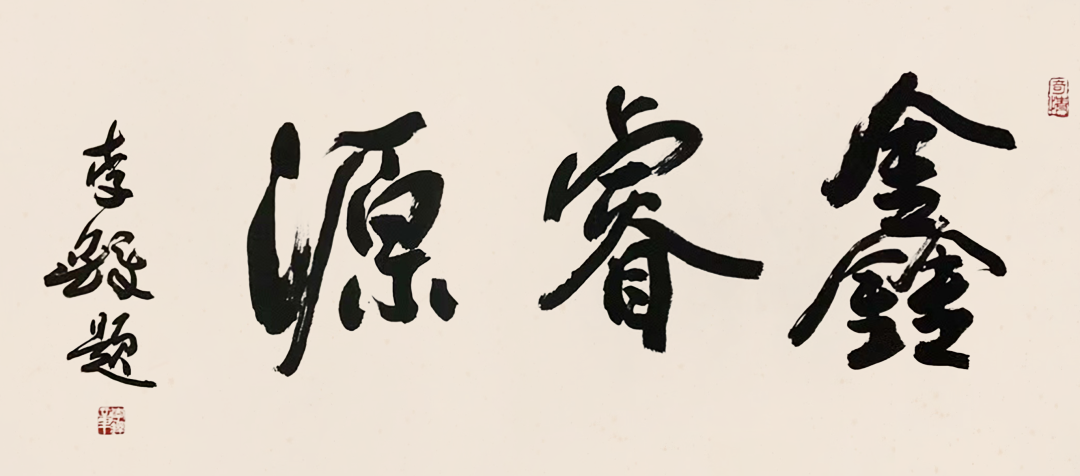 鑫睿源
李毅题